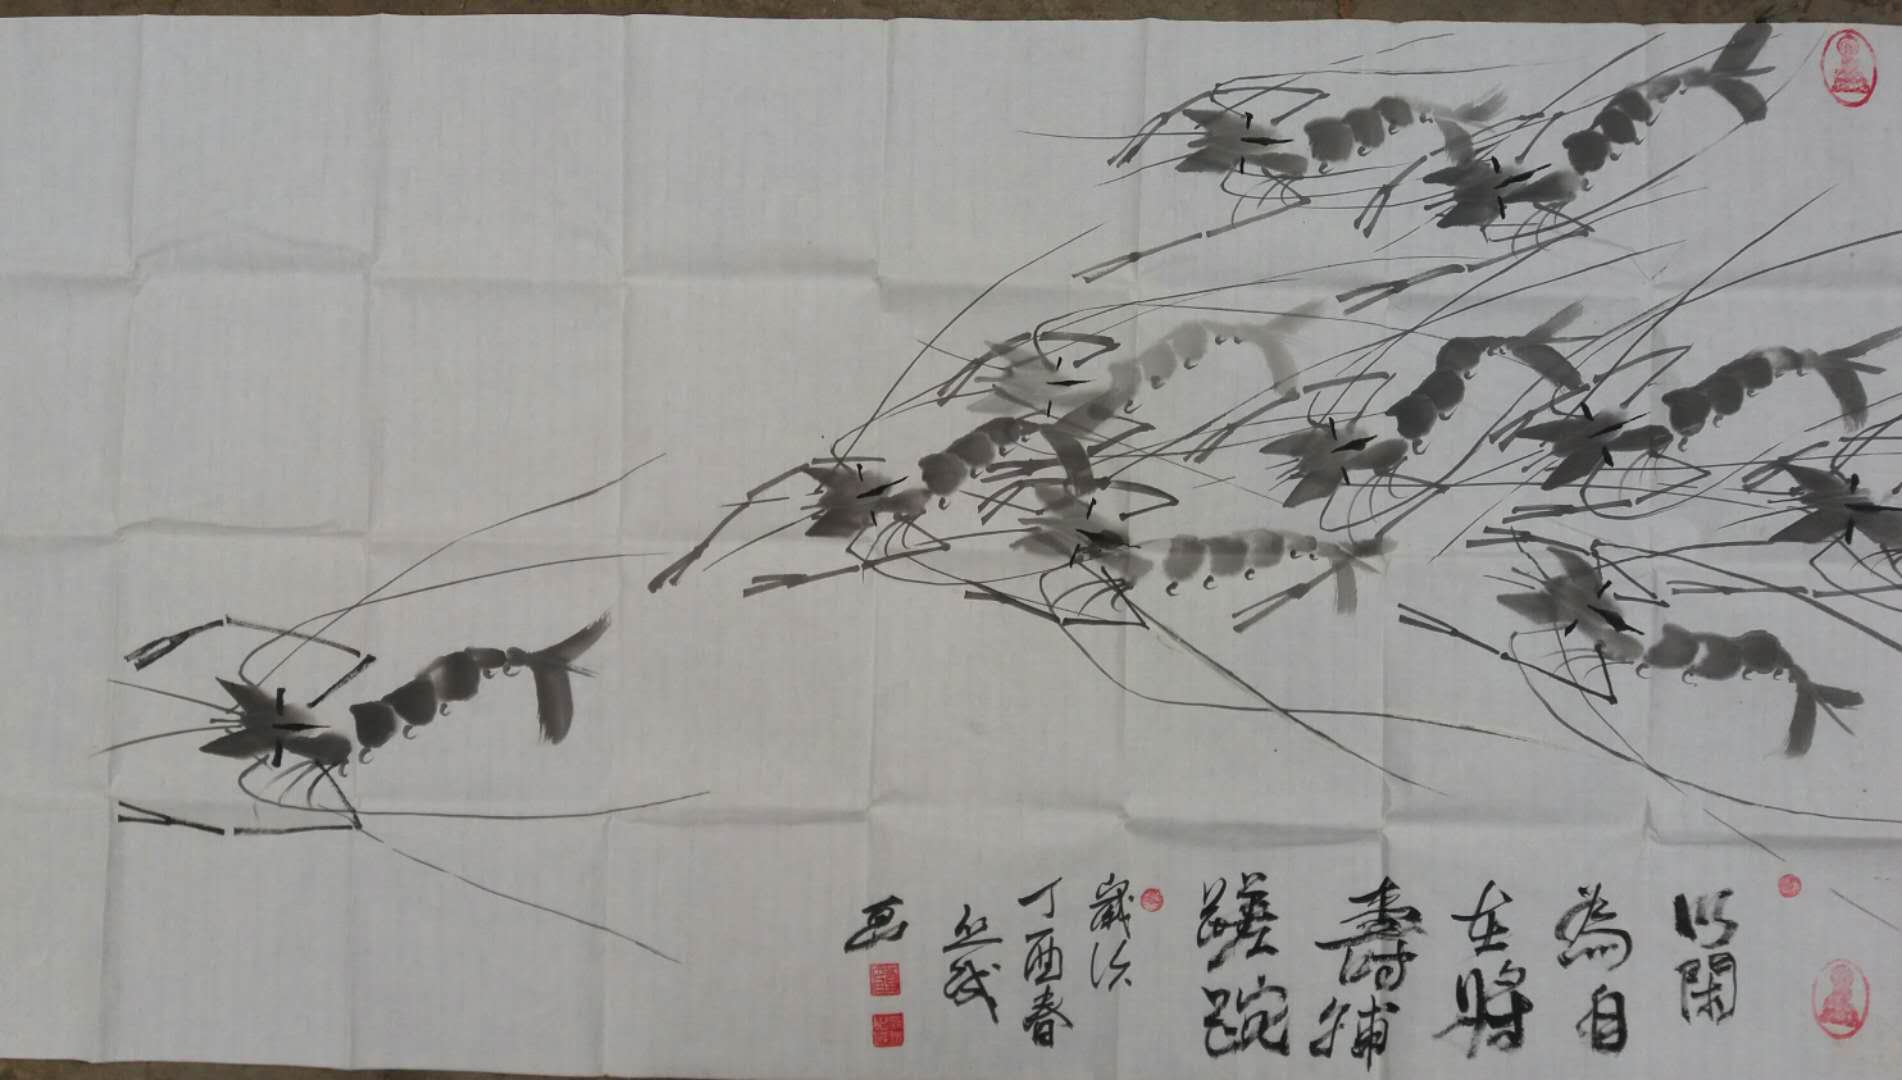 以閑
為自
在將
壽補
蹉跎
歲次
丁酉春
画